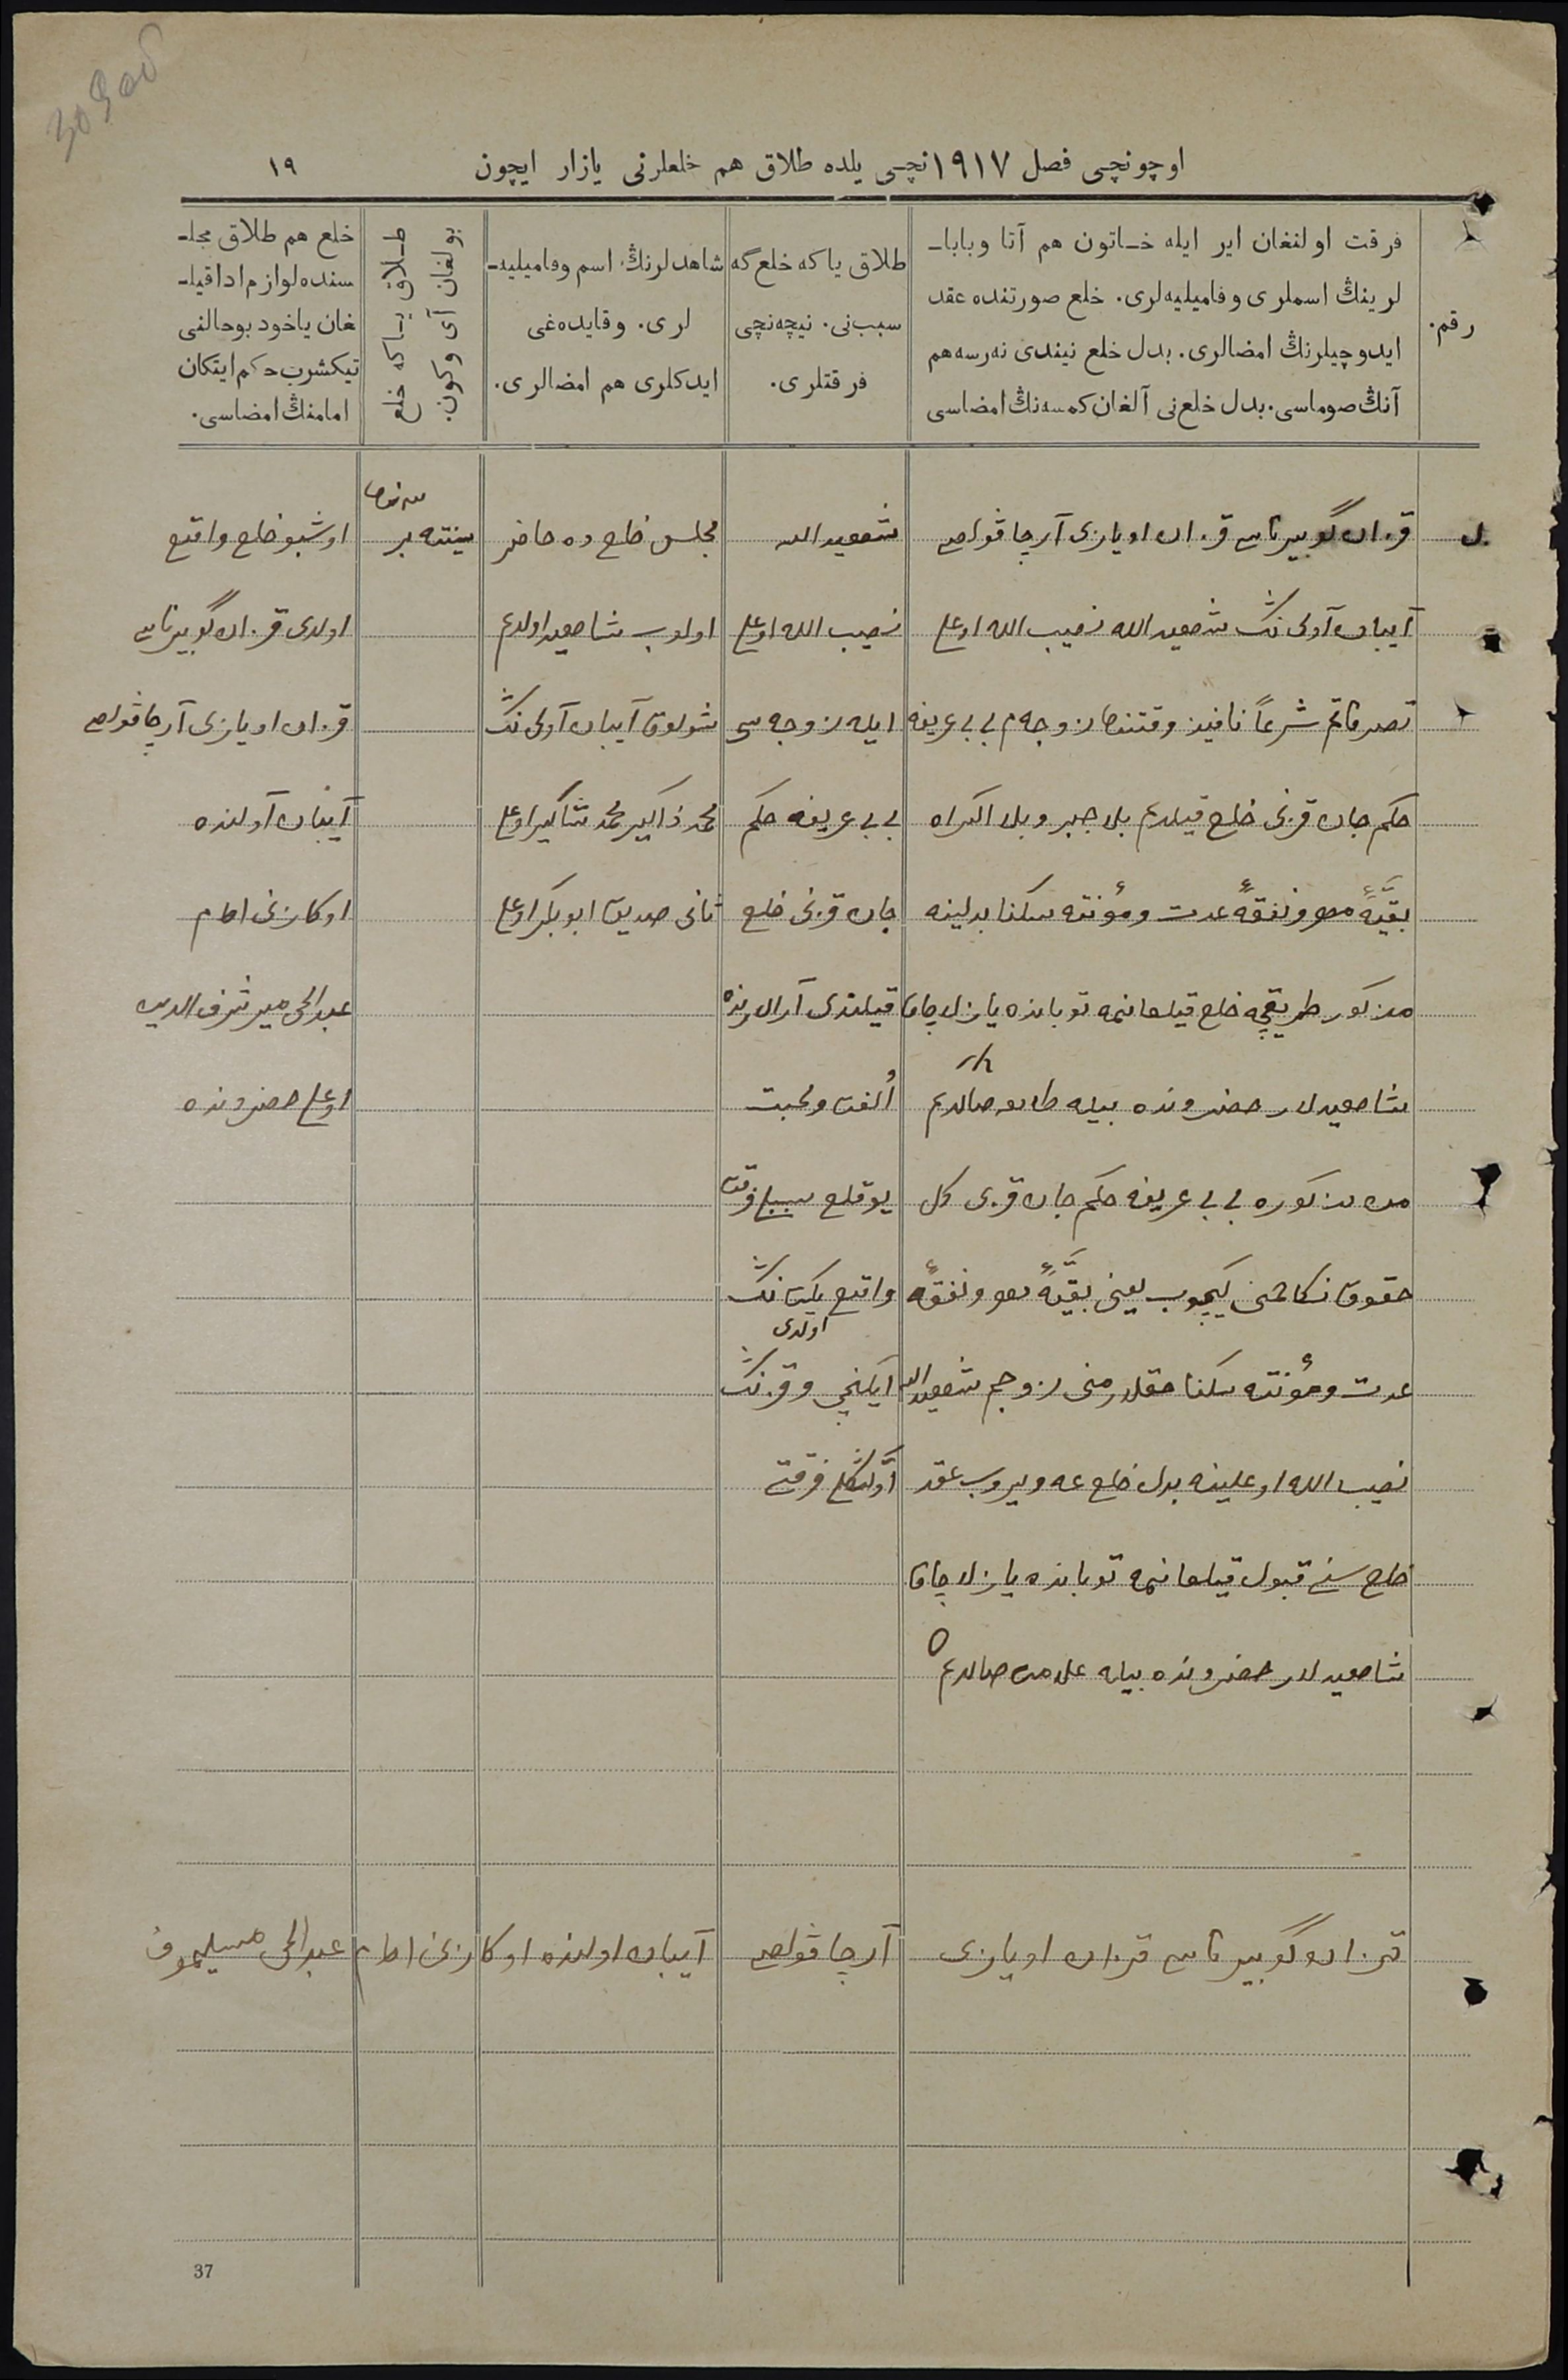 اوچونچی فصل ۱۹۱۷نچی یلده طلاق هم خلعلرنی یازار ایچون
۱۹
رقم.
فرقت اولنغان ایر ایله خاتون هم آتا وبابا‌ـ
لرینڭ اسملری وفامیلیه‌لری. خلع صورتنده عقد
ایدوچیلرنڭ امضالری. بدل خلع نیندی نه‌رسه هم
آنڭ صوماسی. بدل خلع‌نی آلغان کمسه‌نڭ امضاسی
طلاق یاکه خلع گه
سبب‌نی. نیچه‌نچی
فرقتلری.
شاهدلرنڭ اسم وفامیلیه‌ـ
لری. وقایده‌غی
ایدکلری هم امضالری.
طلاق یاکه خلع
بولغان آی وکون.
خلع هم طلاق مجلـ
سنده لوازم اداقیلـ
غان یاخود بوحالنی
تیکشرب حکم ایتکان
امامنڭ امضاسی.
قزان گوبیرناسی قزان اویازی آرچا ڤولصی
آیبان آولی نڭ شهیدالله نصیب الله اوغلی
شرعاً نافیذ وقتنده زوجه‌م بی بی عریفه
حکم جان قزینی خلع قیلدم بلا جبر وبلا اکراه
بقیّهٔ مهر ونفقهٔ عدت ومؤنته سکنا بدلینه
مذکور طریقچه خلع قیلغانیمه توبانده یازلاچاق
شاهیدلر حضرونده بیله طامغا صالدم
من مذکوره بی بی عریفه حکم جان قزی کل
حقوق نکاحنی کیچوب یعنی بقیّهٔ مهر ونفقهٔ
عدت ومؤنته سکنا حقلارمنی زوجم شهیدالله
نصیب الله اوغلینه بدل خلع عه ویروب عقد
خلع سنی قبول قیلغانیمه توبانده یازلاچاق
شاهیدلر حضرونده بیله علامت صالدم
شهیدالله
نصیب الله اوغلی
ایله زوجه سی
بی بی عریفه حکم
جان قزینی خلع
قیلندی آرالارنده
اُلفت ومحبت
یوقلغی سببلی فرقت
واقع اولدی یکت نڭ
ایکنچی وقزنڭ
اوّلگی فرقتی
مجلس خلع ده حاضر
اولوب شاهید اولدم
شولوق آیبان آولی نڭ
محمد ذاکیر محمد شاکیر اوغلی
ثانی صدیق ابوبکر اوغلی
اوشبو خلع واقع
اولدی قزان گوبیرناسی
قزان اویازی آرچا ڤولصی
آیبان آولنده
اوکازنی امام
عبدالحی میر شرف الدین
اوغلی حضرونده
قزان گوبیرناسی قزان اویازی آرچا ڤولصی آیبان اولنده اوکازنی امام عبدالحی
37